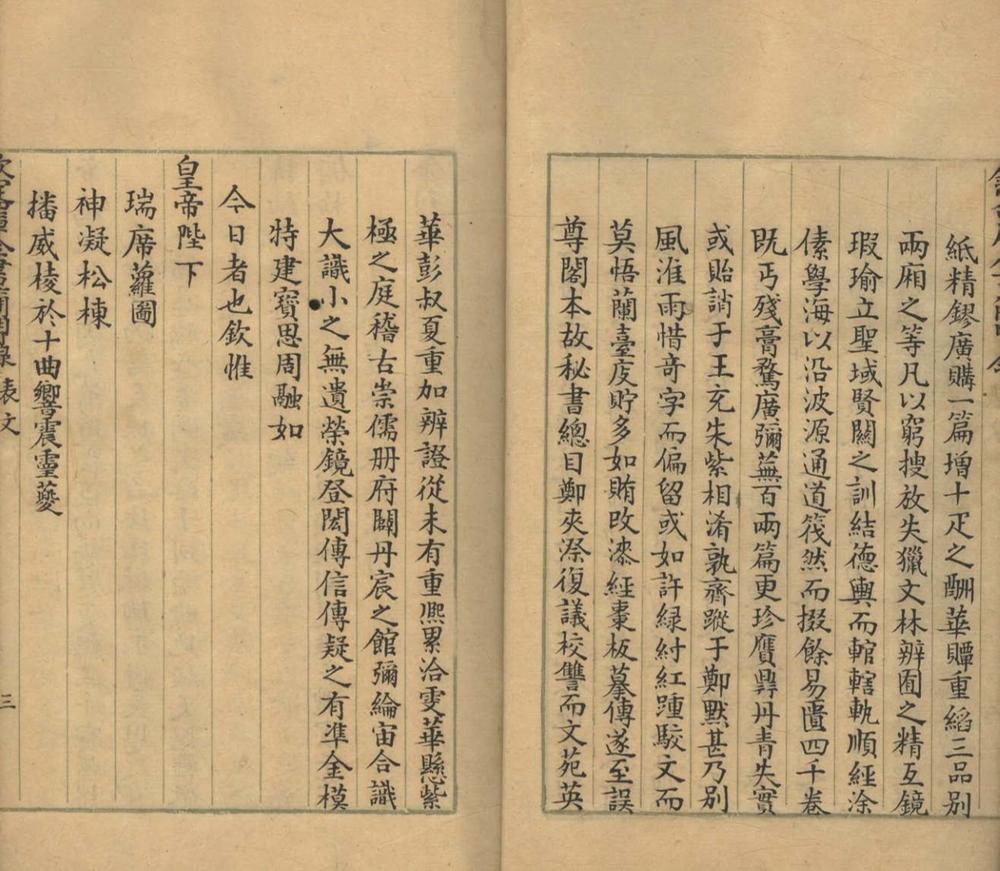 紙精鏐廣購一篇增十疋之酬華贉重縚三品别
兩厢之等凡以窮搜放失獵文林辨囿之精互鏡
瑕瑜立聖域賢關之訓結德輿而輨轄軌順經涂
傃學海以沿波源通道筏然而掇餘易匱四千卷
既丐殘膏騖廣彌蕪百兩篇更珍贋鼎丹青失實
或貽誚于王充朱紫相淆孰齊蹤于鄭默甚乃别
風淮雨惜奇字而偏留或如許緑紂紅踵駮文而
莫悟蘭臺庋貯多如賄改漆經棗板摹傳遂至誤
尊閣本故秘書總目鄭夾漈復議校讐而文苑英
華彭叔夏重加辨證從未有重熙累洽雯華懸紫
極之庭稽古崇儒册府闢丹宸之館彌綸宙合識
大識小之無遺榮鏡登閎傳信傳疑之有準金模
特建寶思周融如
今日者也欽惟
皇帝陛下
瑞席蘿圖
神凝松棟
播威棱於十曲響震靈夔
表文
三